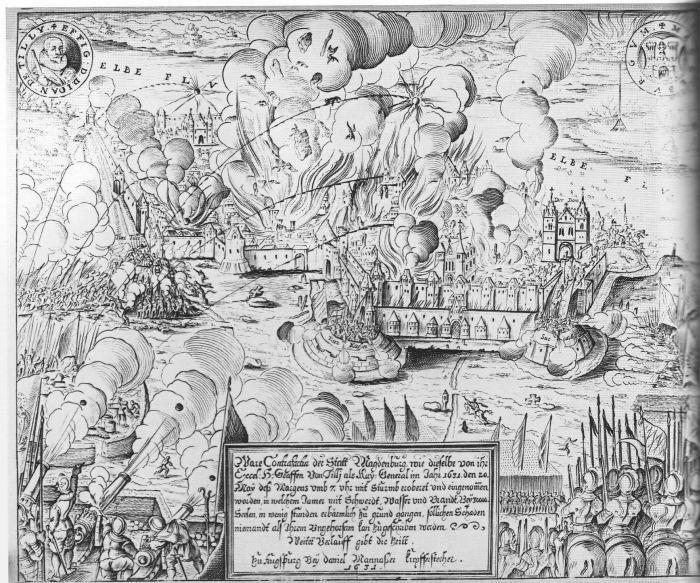 EFFIG. D. IOAN. DE TILLY
ELBE FLV
ELBE FL
MA BVRGVM
Ware Contrafactur der Statt Magdenburg, wie dieselbe von ihr
Excel. H. Graffen Von Tilly als Kay. General im Jahr 1631. den 20.
May deß Morgens vmb 7. vhr mit Sturmb erobert vnd eingenommen
worden, in welchem Jamer mit Schwerdt, Wasser vnd Brandt. Bey
Seelen, in wenig stunden erbärmlich zu grund gangen, sollichen Schaden
niemandt als Ihrem Vngehorsam kan zugeschriben werden
Weiter Verlauff gibt die Zeitt.
Zu Augspurg Bey daniel Mannasser kupfferstecher.
1631.